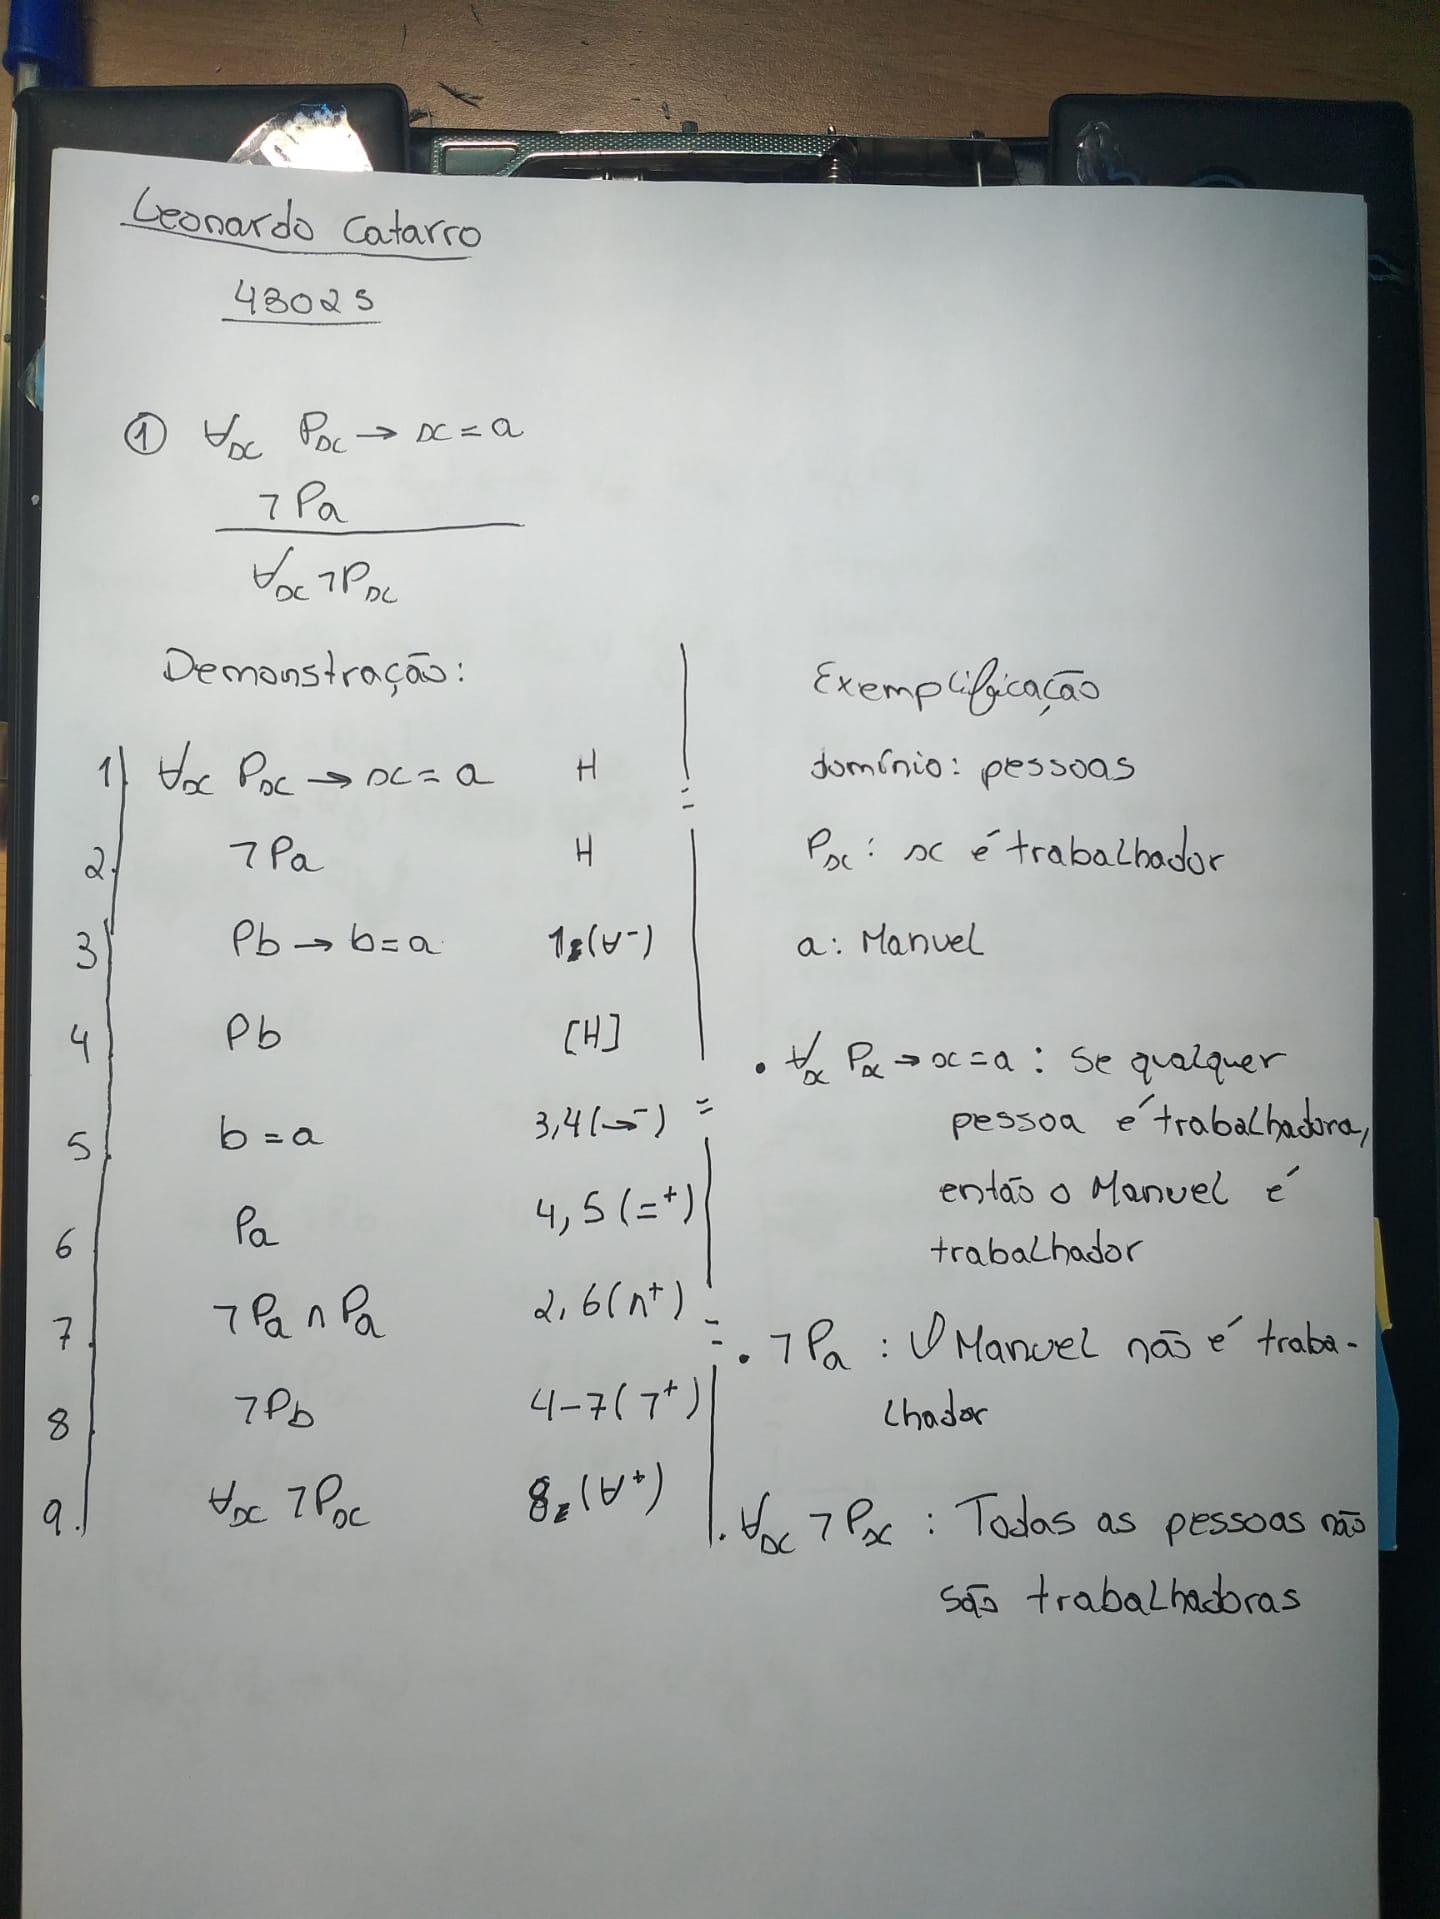 Leonardo Catarro
43025
① ∀x Px → x = a
¬Pa
∀x ¬Px
Demonstração:
1 ∀x Px → x = a H
2. ¬Pa H
3 Pb → b = a 1,(∀⁻)
4 Pb [H]
5. b = a 3,4(→⁻)
6 Pa 4,5(=⁺)
7. ¬Pa ∧ Pa 2,6(∧⁺)
8 ¬Pb 4-7(¬⁺)
9. ∀x ¬Px 8,(∀⁺)
Exemplificação
domínio: pessoas
Px: x é trabalhador
a: Manuel
• ∀x Px → x = a : Se qualquer
pessoa é trabalhadora,
então o Manuel é
trabalhador
• ¬Pa : O Manuel não é traba-
lhador
. ∀x ¬Px : Todas as pessoas não
são trabalhadoras